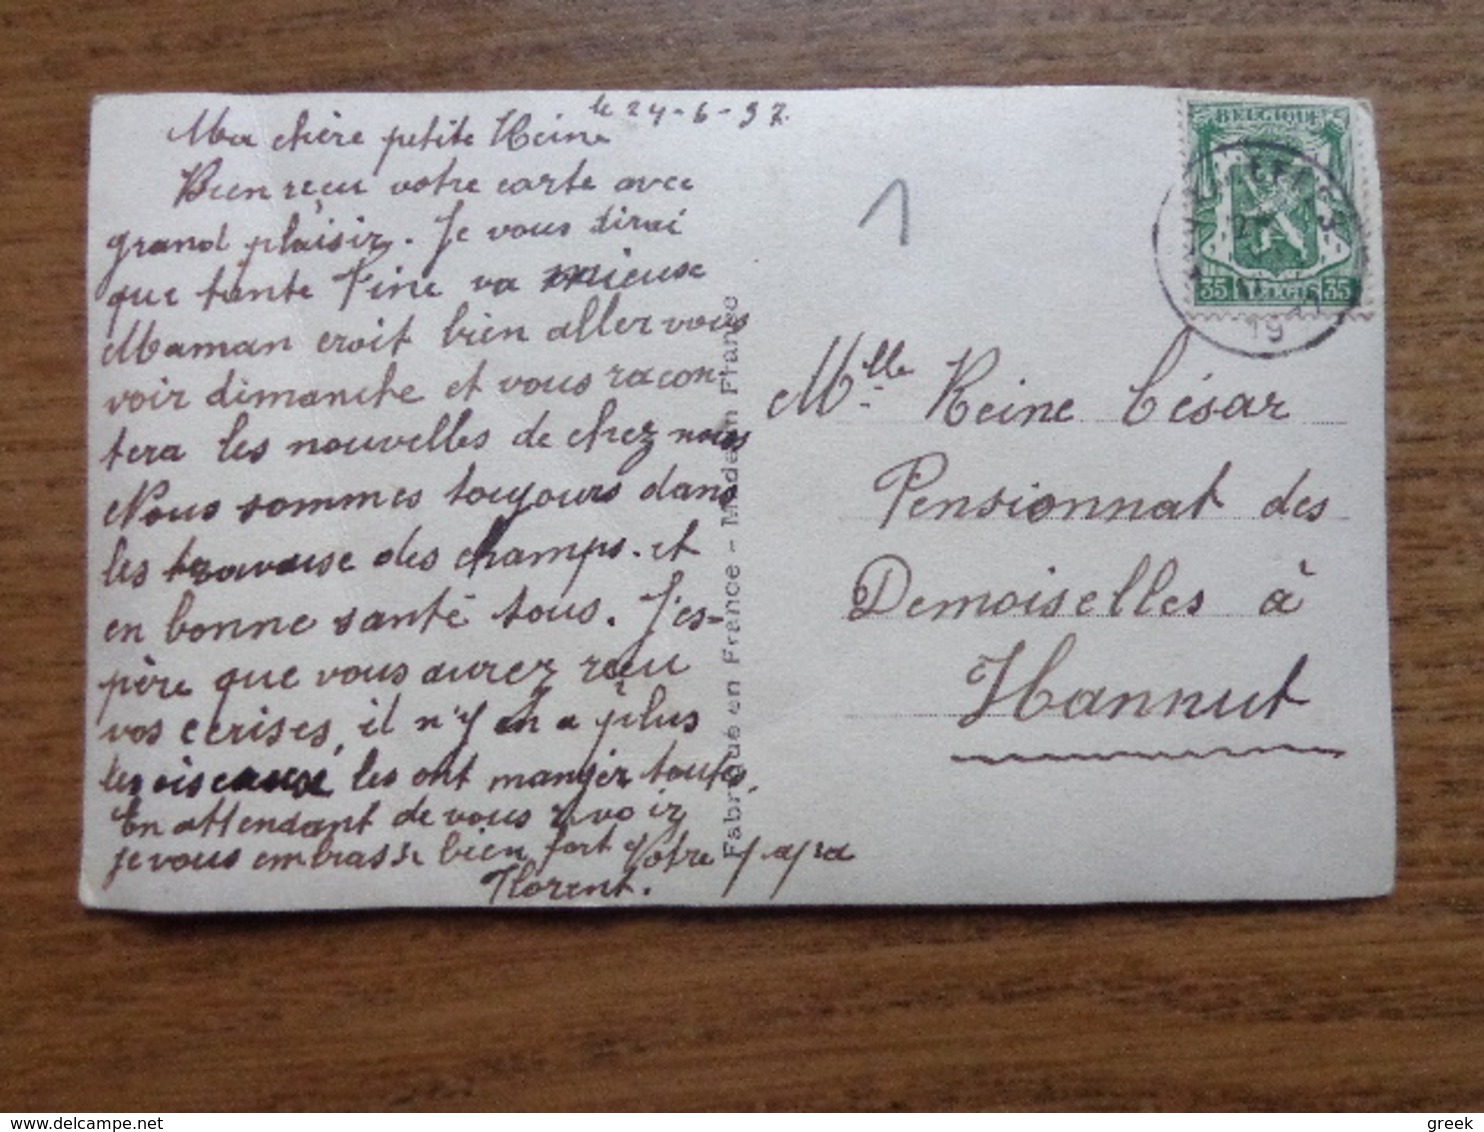 le 24-6-37.
Ma chère petite Reine
Bien reçu votre carte avec
grand plaisir. Je vous dirai
que tante Fine va mieuse
Maman croit bien aller vous
voir dimanche et vous racon-
tera les nouvelles de chez nous
Nous sommes toujours dans
les travause des champs. et
en bonne santé tous. J'es-
père que vous aurez reçu
vos cerises, il n'y en a plus
les oiseause les ont manger toutes,
En attendant de vous revoir
je vous embrasse bien fort Votre papa
Florent.
Fabriqué en France - Made in France
1
BELGIQUE
35 BELGIE 35
19
Mlle Reine César
Pensionnat des
Demoiselles à
Hannut
greek
delcampe.net